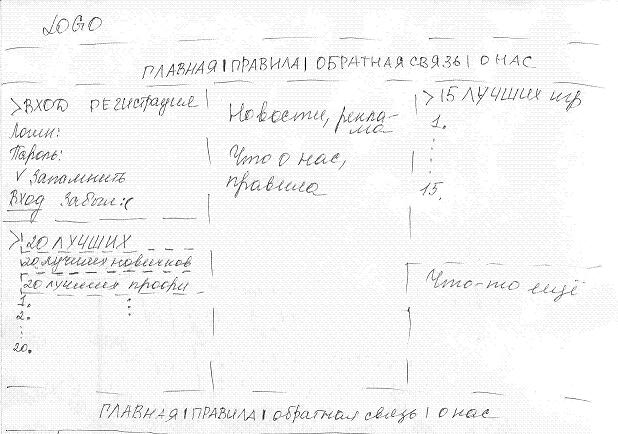 LOGO
ГЛАВНАЯ | ПРАВИЛА | ОБРАТНАЯ СВЯЗЬ | О НАС
>ВХОД РЕГИСТРАЦИЯ
Логин:
Пароль:
V Запомнить
Вход Забыл:(
>20 ЛУЧШИХ
20 лучших новичков
20 лучших профи
1. :
2.
:
20.
Новости, рекла-
ма
Что о нас,
правила
>15 ЛУЧШИХ игр
1.
:
15.
Что-то ещё
ГЛАВНАЯ | ПРАВИЛА | обратная связь | О нас